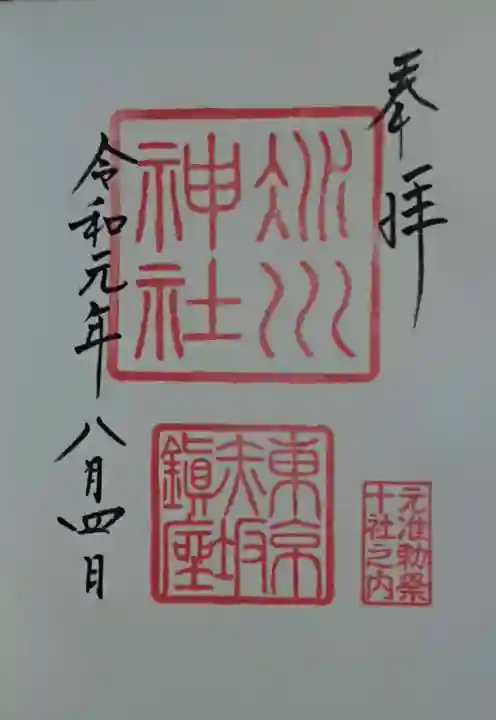 奉拝
氷川
神社
東京
赤坂
鎮座
元准勅祭
十社之内
令和元年八月四日